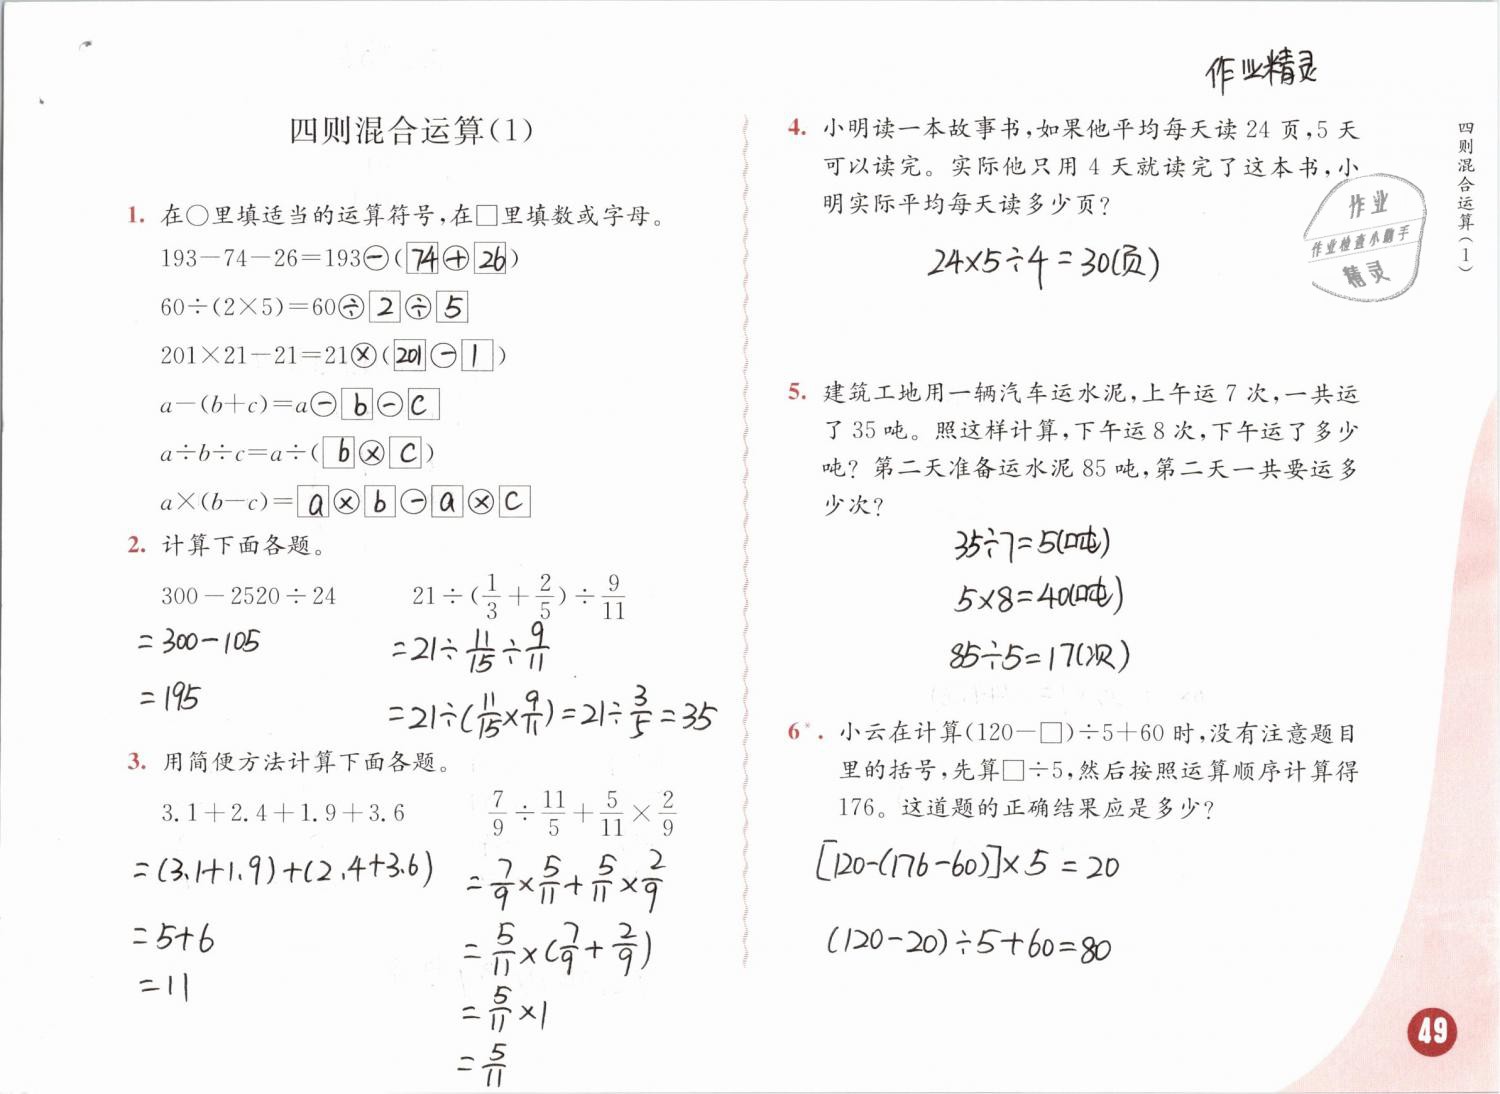 作业精灵
四则混合运算(1)
1. 在○里填适当的运算符号,在□里填数或字母。
193－74－26＝193－(74＋26)
60÷(2×5)＝60÷2÷5
201×21－21＝21×(201－1)
a－(b＋c)＝a－b－c
a÷b÷c＝a÷(b×c)
a×(b－c)＝a×b－a×c
2. 计算下面各题。
300－2520÷24 21÷(1/3＋2/5)÷9/11
=300-105 =21÷11/15÷9/11
=195 =21÷(11/15×9/11)=21÷3/5=35
3. 用简便方法计算下面各题。
3.1＋2.4＋1.9＋3.6 7/9÷11/5＋5/11×2/9
=(3.1+1.9)+(2.4+3.6) =7/9×5/11+5/11×2/9
=5+6 =5/11×(7/9+2/9)
=11 =5/11×1
=5/11
4. 小明读一本故事书,如果他平均每天读 24 页,5 天
可以读完。实际他只用 4 天就读完了这本书,小
明实际平均每天读多少页?
24×5÷4=30(页)
作业
作业检查小助手
精灵
5. 建筑工地用一辆汽车运水泥,上午运 7 次,一共运
了 35 吨。照这样计算,下午运 8 次,下午运了多少
吨? 第二天准备运水泥 85 吨,第二天一共要运多
少次?
35÷7=5(吨)
5×8=40(吨)
85÷5=17(次)
6*. 小云在计算(120－□)÷5＋60 时,没有注意题目
里的括号,先算□÷5,然后按照运算顺序计算得
176。这道题的正确结果应是多少?
[120-(176-60)]×5=20
(120-20)÷5+60=80
四则混合运算(1)
49